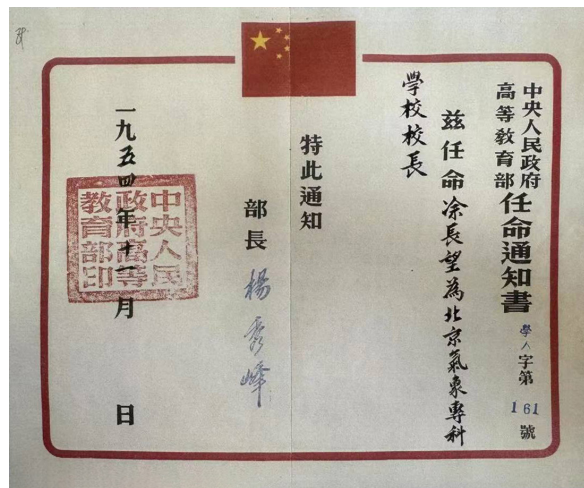 中央人民政府
高等教育部
任命通知書
學人字第161號
茲任命涂長望為北京氣象專科
學校校長
特此通知
部長 楊秀峰
一九五四年十一月 日
中央人民
政府高等
教育部印